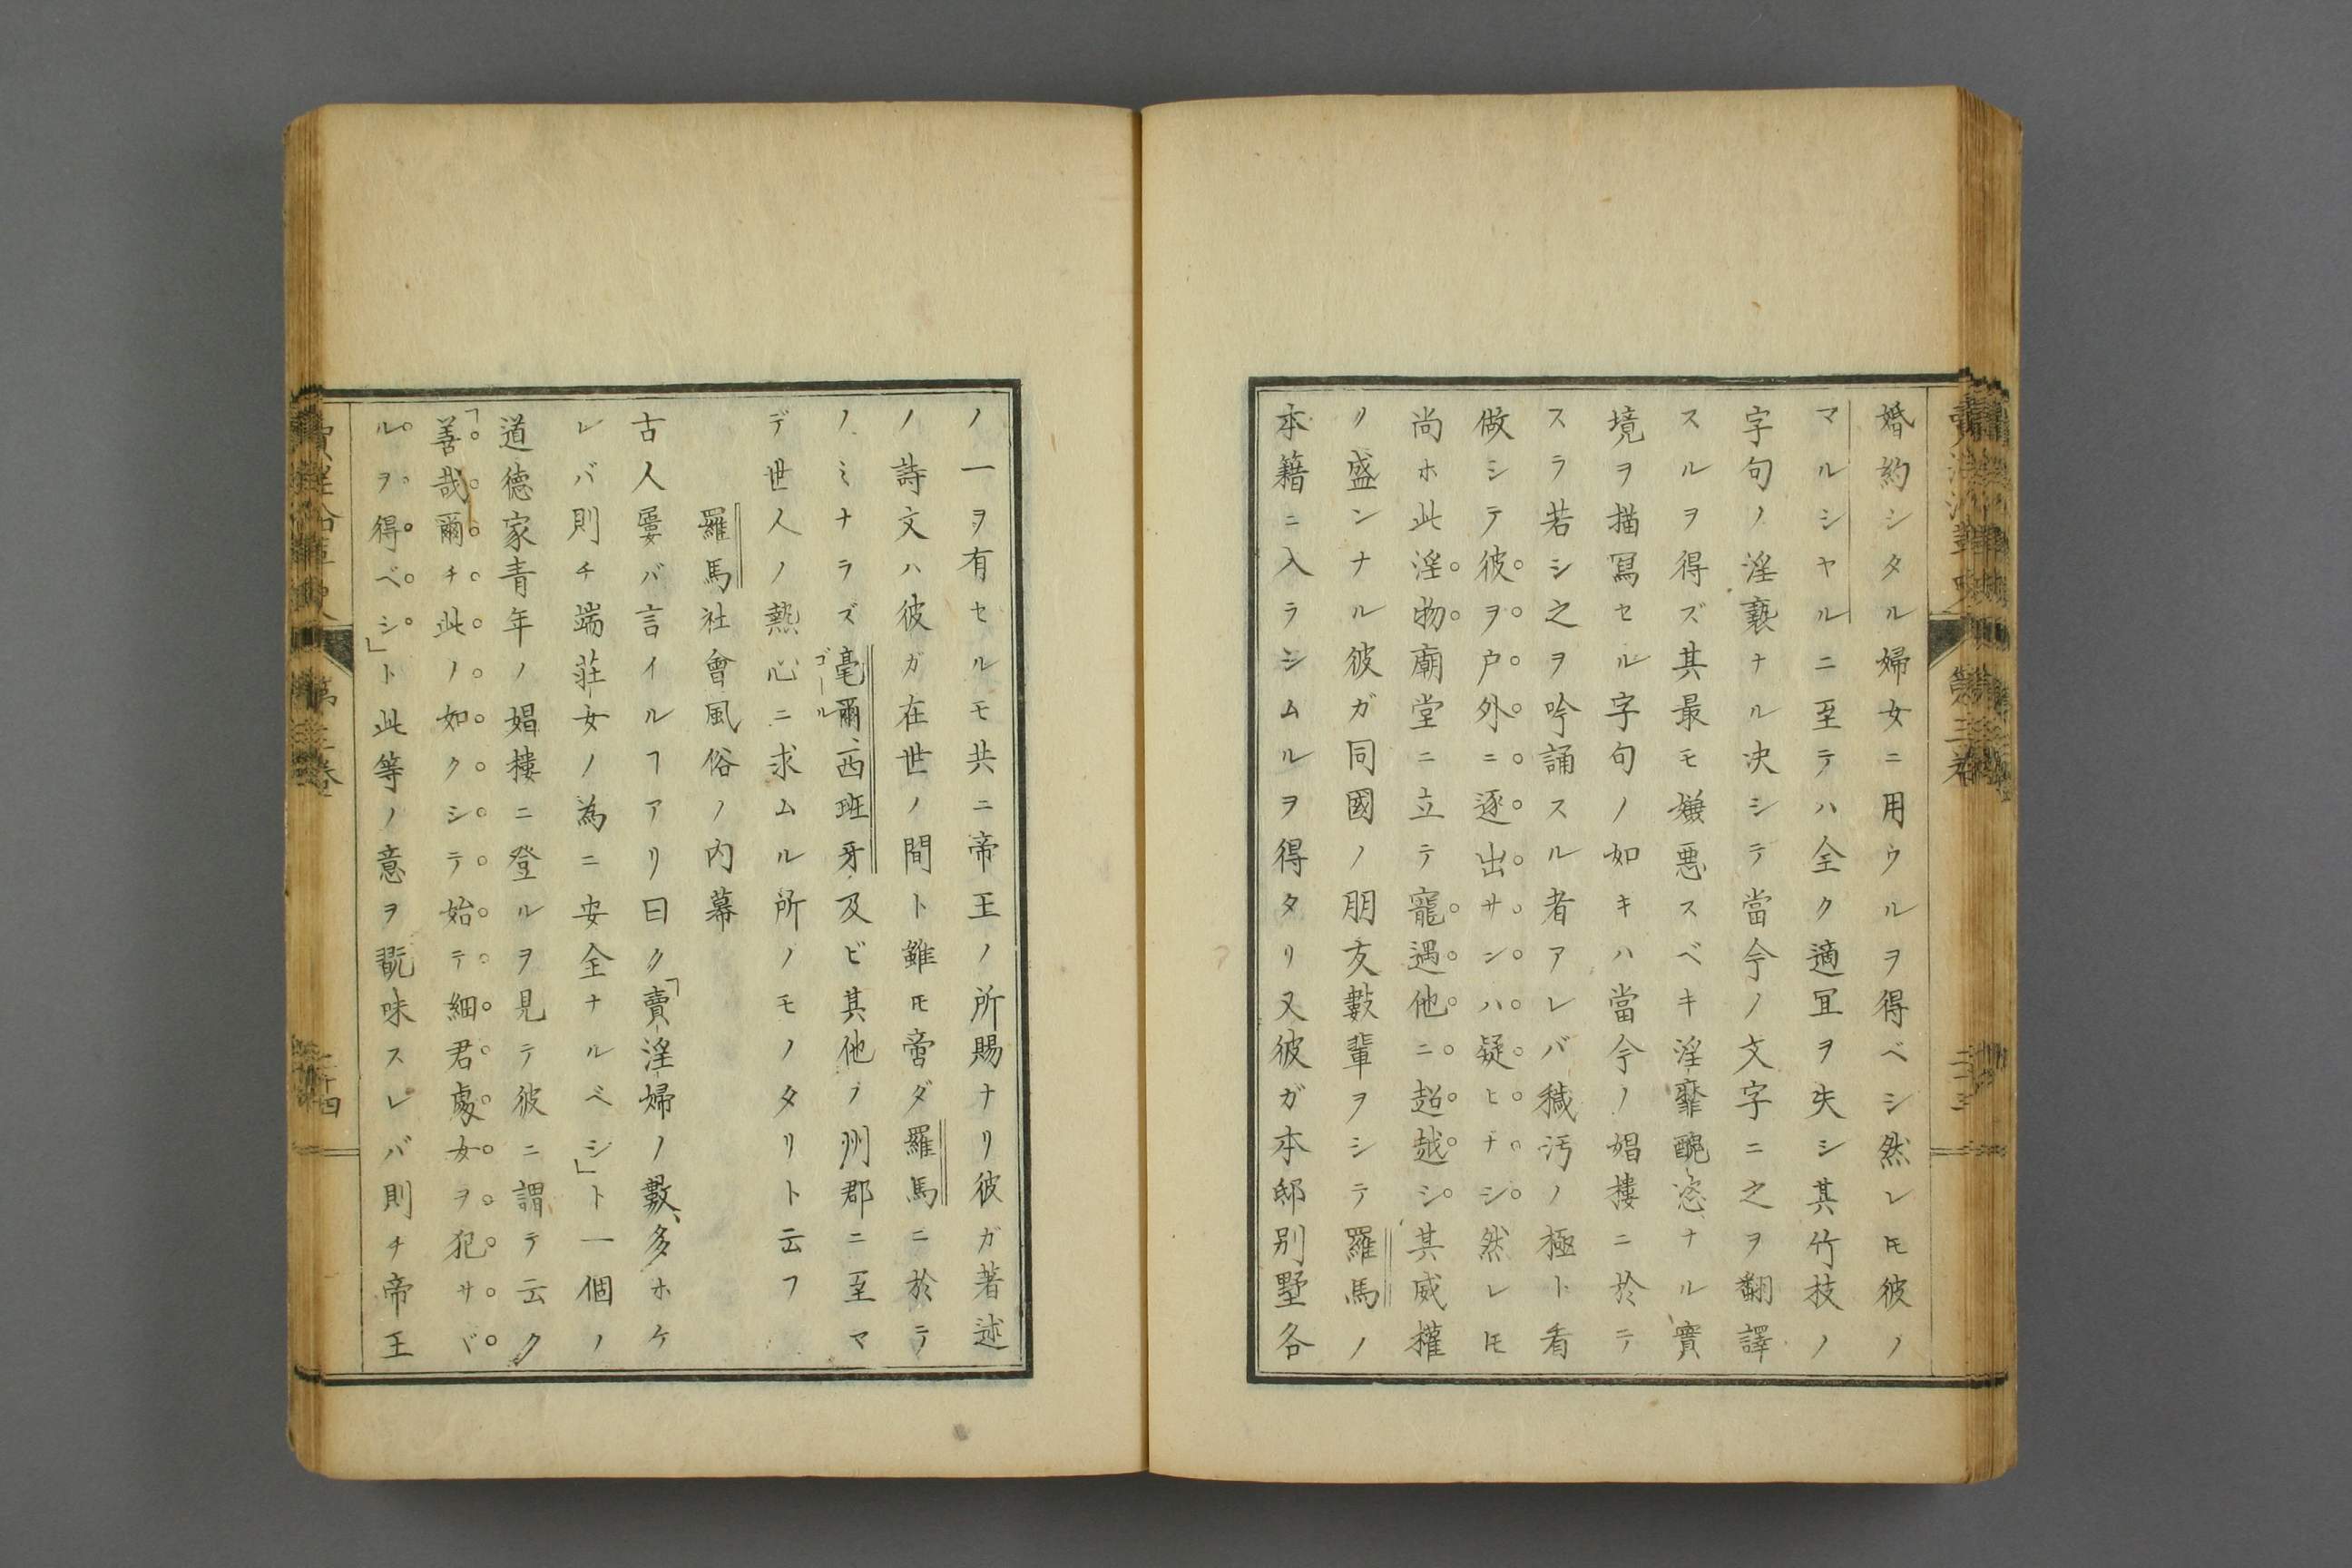 婚約シタル婦女ニ用ウルヲ得ベシ然レ𪜈彼ノ
マルシヤルニ至テハ全ク適冝ヲ失シ其竹枝ノ
字句ノ淫褻ナル决シテ當今ノ文字ニ之ヲ翻譯
スルヲ得ズ其最モ嫌悪スベキ淫靡醜恣ナル實
境ヲ描冩セル字句ノ如キハ當今ノ娼樓ニ於テ
スラ若シ之ヲ吟誦スル者アレバ穢汚ノ極ト看
做シテ彼ヲ户外ニ逐出サンハ疑ヒナシ然レ𪜈
尚ホ此淫物廟堂ニ立テ寵遇他ニ超越シ其威權
ノ盛ンナル彼ガ同國ノ朋友數輩ヲシテ羅馬ノ
本籍ニ入ラシムルヲ得タリ又彼ガ本邸別墅各
ノ一ヲ有セルモ共ニ帝王ノ所賜ナリ彼ガ著述
ノ詩文ハ彼ガ在世ノ間ト雖𪜈啻ダ羅馬ニ於テ
ノミナラズ毫爾、西班牙及ビ其他ノ州郡ニ至マ
ゴール
デ世人ノ熱心ニ求ムル所ノモノタリト云フ
羅馬社會風俗ノ内幕
古人屡バ言イルヿアリ曰ク「賣淫婦ノ數多ホケ
レバ則チ端荘女ノ為ニ安全ナルベシ」ト一個ノ
道德家青年ノ娼樓ニ登ルヲ見テ彼ニ謂テ云ク
「善哉爾チ此ノ如クシテ始テ細君處女ヲ犯サヾ
ルヲ得ベシ」ト此等ノ意ヲ翫味スレバ則チ帝王
第三卷